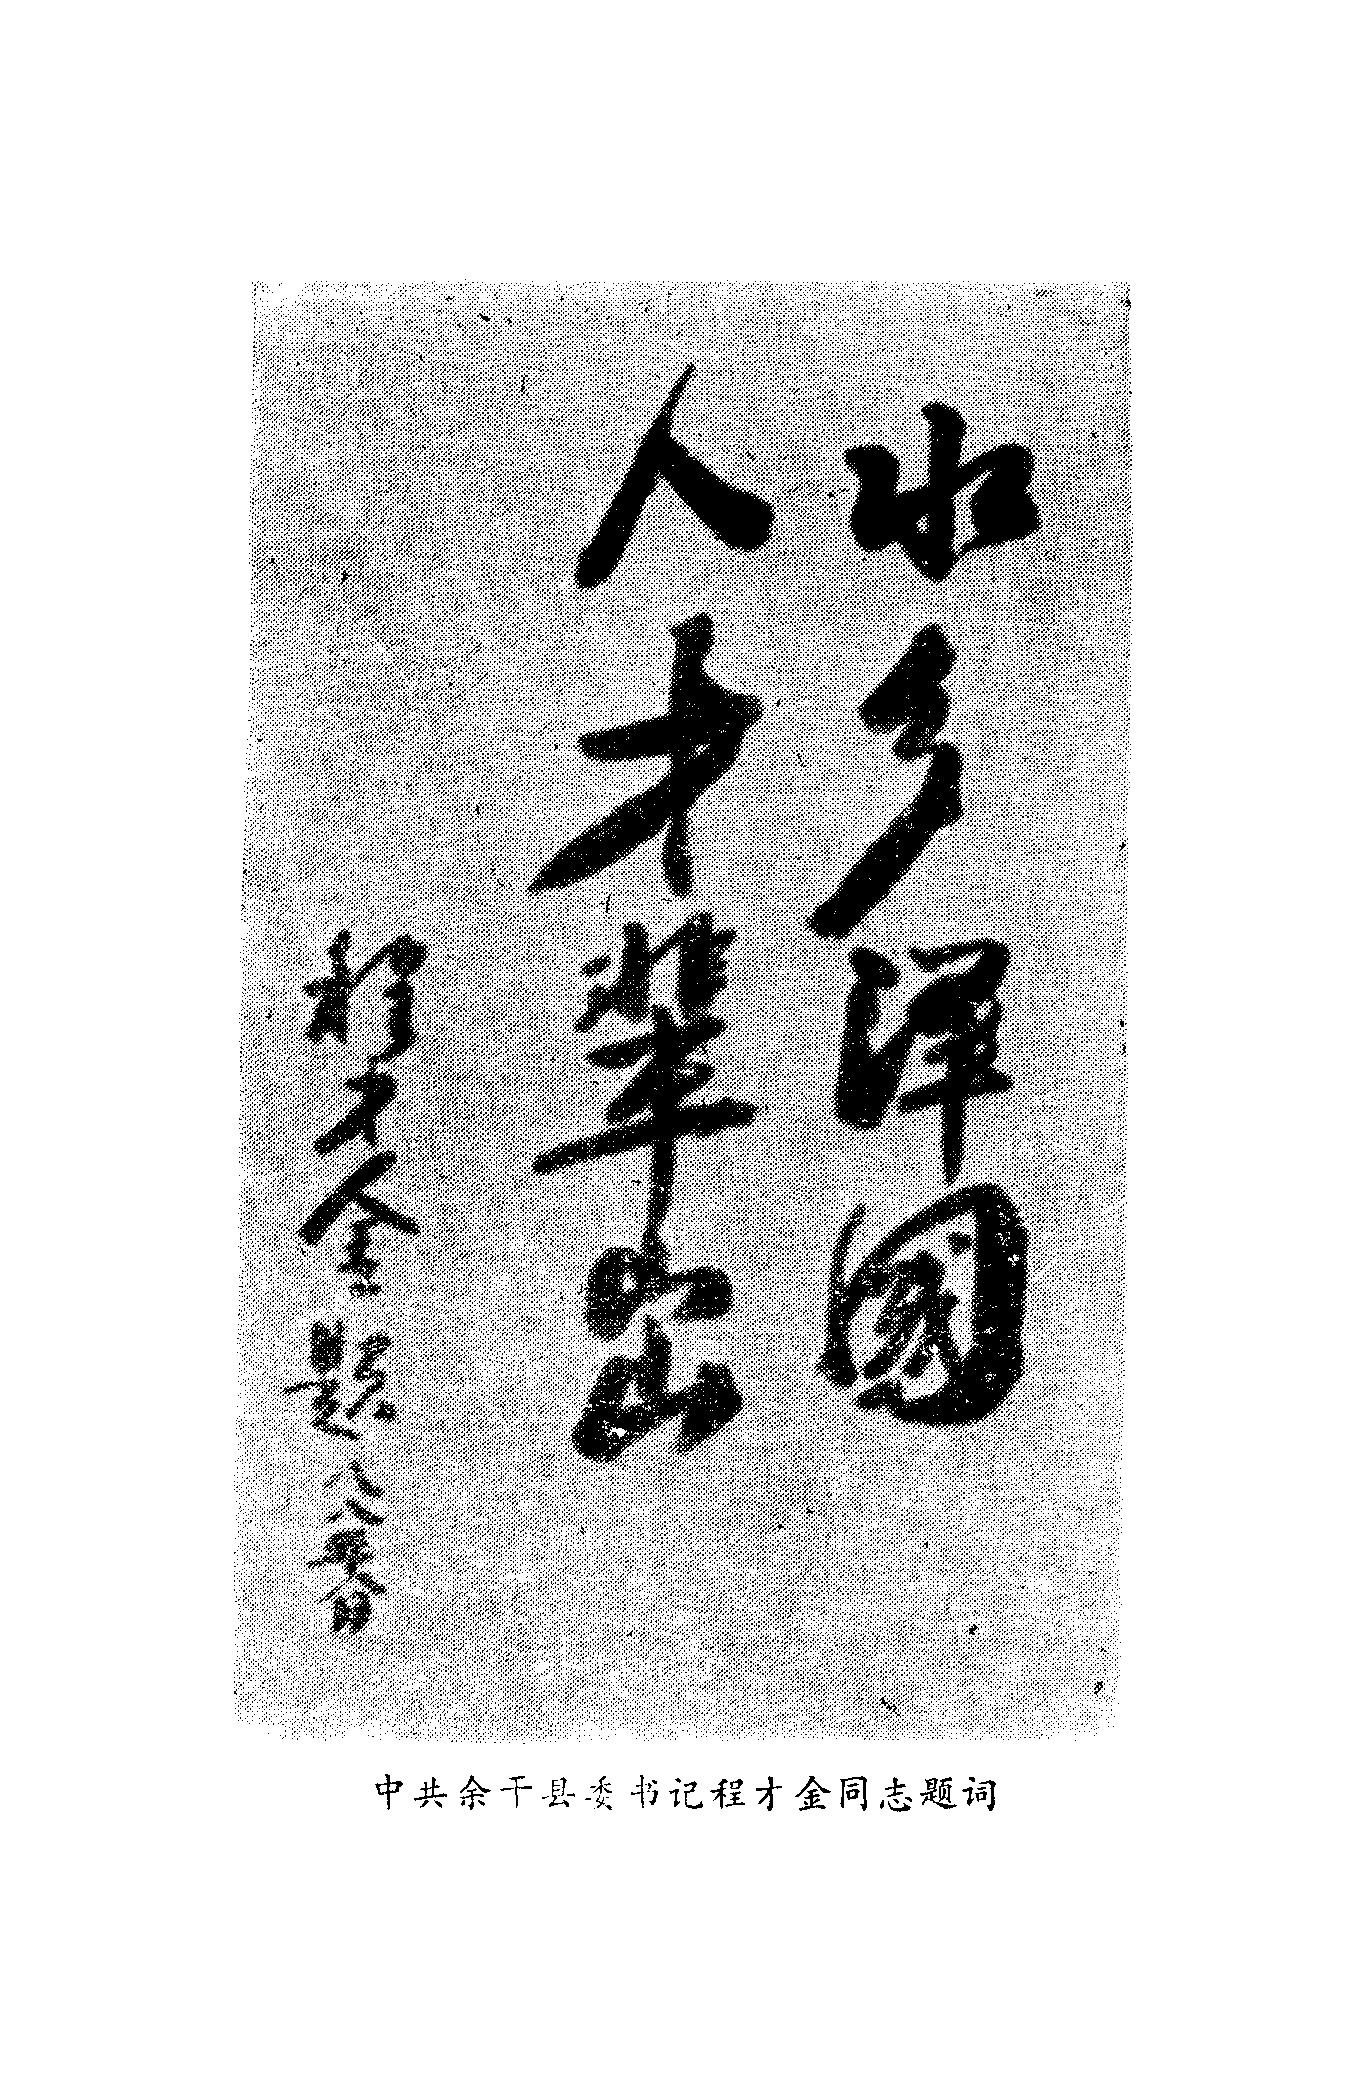 水乡泽國
人才辈出
程才金题 八八年八月
中共余干县委书记程才金同志题词